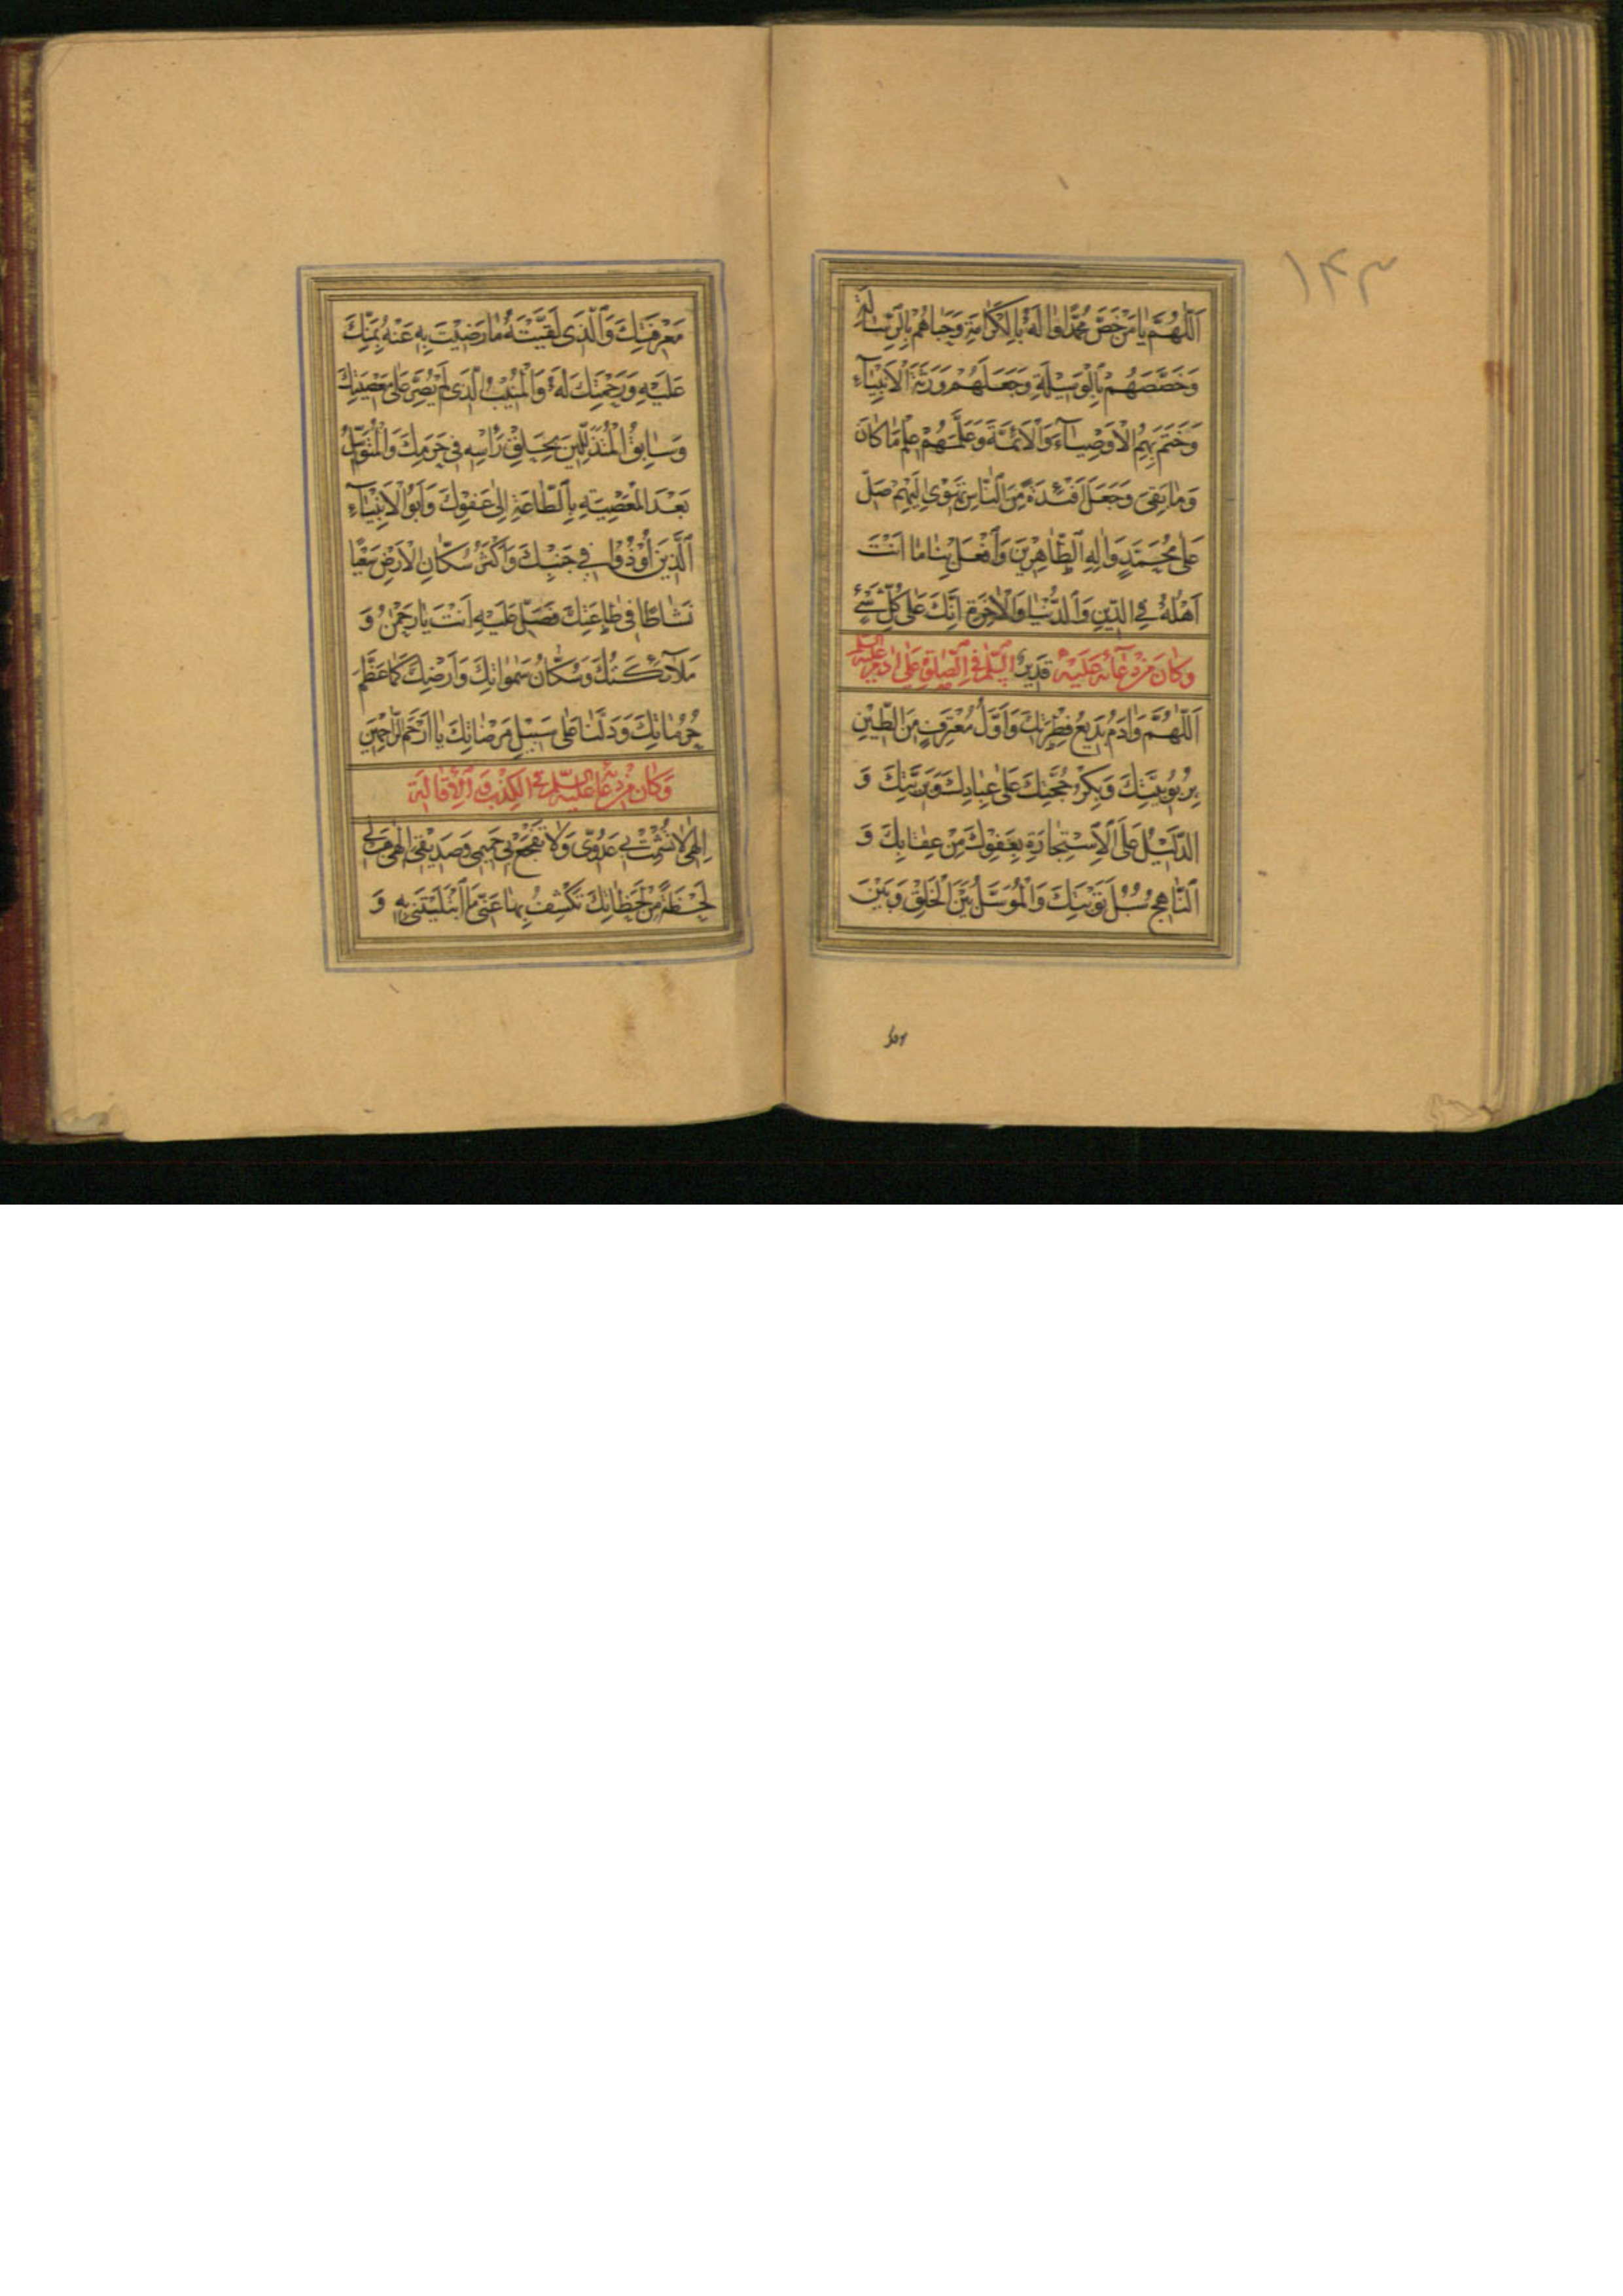 ١٤٣
اَللّٰهُمَّ يا مَنْ خَصَّ مُحَمَّدًا وَالَهُ بِالْكَرامَةِ وَحَباهُمْ بِالرِّسالَةِ
وَخَصَّصَهُمْ بِالْوَسيلَةِ وَجَعَلَهُمْ وَرَثَةَ الْاَنْبِيآءِ
وَخَتَمَ بِهِمُ الْاَوْصِيآءَ وَالْاَئِمَّةَ وَعَلَّمَهُمْ عِلْمَ ما كانَ
وَما بَقِىَ وَجَعَلَ اَفْئِدَةً مِنَ النّاسِ تَهْوى اِلَيْهِمْ صَلِّ
عَلى مُحَمَّدٍ وَالِهِ الطّاهِرينَ وَافْعَلْ بِنا ما اَنْتَ
اَهْلُهُ فِى الدّينِ وَالدُّنْيا وَالْاخِرَةِ اِنَّكَ عَلى كُلِّ شَىْءٍ
وَكانَ مِنْ دُعآئِهِ عَلَيْهِ قَديرٌ السَّلمُ فِى الصَّلوةِ عَلى ادَمَ عَلَيْهِ السَّلمُ
اَللّٰهُمَّ وَادَمُ بَديعُ فِطْرَتِكَ وَاَوَّلُ مُعْتَرِفٍ مِنَ الطّينِ
بِرُبُوبِيَّتِكَ وَبِكْرُ حُجَّتِكَ عَلى عِبادِكَ وَبَرِيَّتِكَ وَ
الدَّليلُ عَلَى الْاِسْتِجارَةِ بِعَفْوِكَ مِنْ عِقابِكَ وَ
النّاهِجُ سُبُلَ تَوْبَتِكَ وَالْمُوَسَّلُ بَيْنَ الْخَلْقِ وَبَيْنَ
مَعْرِفَتِكَ وَالَّذى لَقَّيْتَهُ ما رَضيتَ بِهِ عَنْهُ بِمَنِّكَ
عَلَيْهِ وَرَحْمَتِكَ لَهُ وَالْمُنيبُ الَّذى لَمْ يُصِرَّ عَلى مَعْصِيَتِكَ
وَسابِقُ الْمُتَذَلِّلينَ بِحَلْقِ رَأْسِهِ فى حَرَمِكَ وَالْمُتَوَسِّلُ
بَعْدَ الْمَعْصِيَةِ بِالطّاعَةِ اِلى عَفْوِكَ وَاَبُو الْاَنْبِيآءِ
الَّذينَ اُوذُوا فى جَنْبِكَ وَاَكْثَرُ سُكّانِ الْاَرْضِ سَعْيًا
نَشاطًا فى طاعَتِكَ فَصَلِّ عَلَيْهِ اَنْتَ يا رَحْمنُ وَ
مَلآئِكَتُكَ وَسُكّانُ سَمواتِكَ وَاَرْضِكَ كَما عَظَّمَ
حُرُماتِكَ وَدَلَّنا عَلى سَبيلِ مَرْضاتِكَ يا اَرْحَمَ الرّاحِمينَ
وَكانَ مِنْ دُعائِهِ عَلَيْهِ السَّلمُ فِى الْكَرْبِ وَالْاِقالَةِ
اِلهى لا تُشْمِتْ بى عَدُوّى وَلا تَفْجَعْ بى حَميمى وَصَديقى اِلهى هَبْ لى
لَحْظَةً مِنْ لَحَظاتِكَ تَكْشِفُ بِها عَنّى مَا ابْتَلَيْتَنى بِهِ وَ